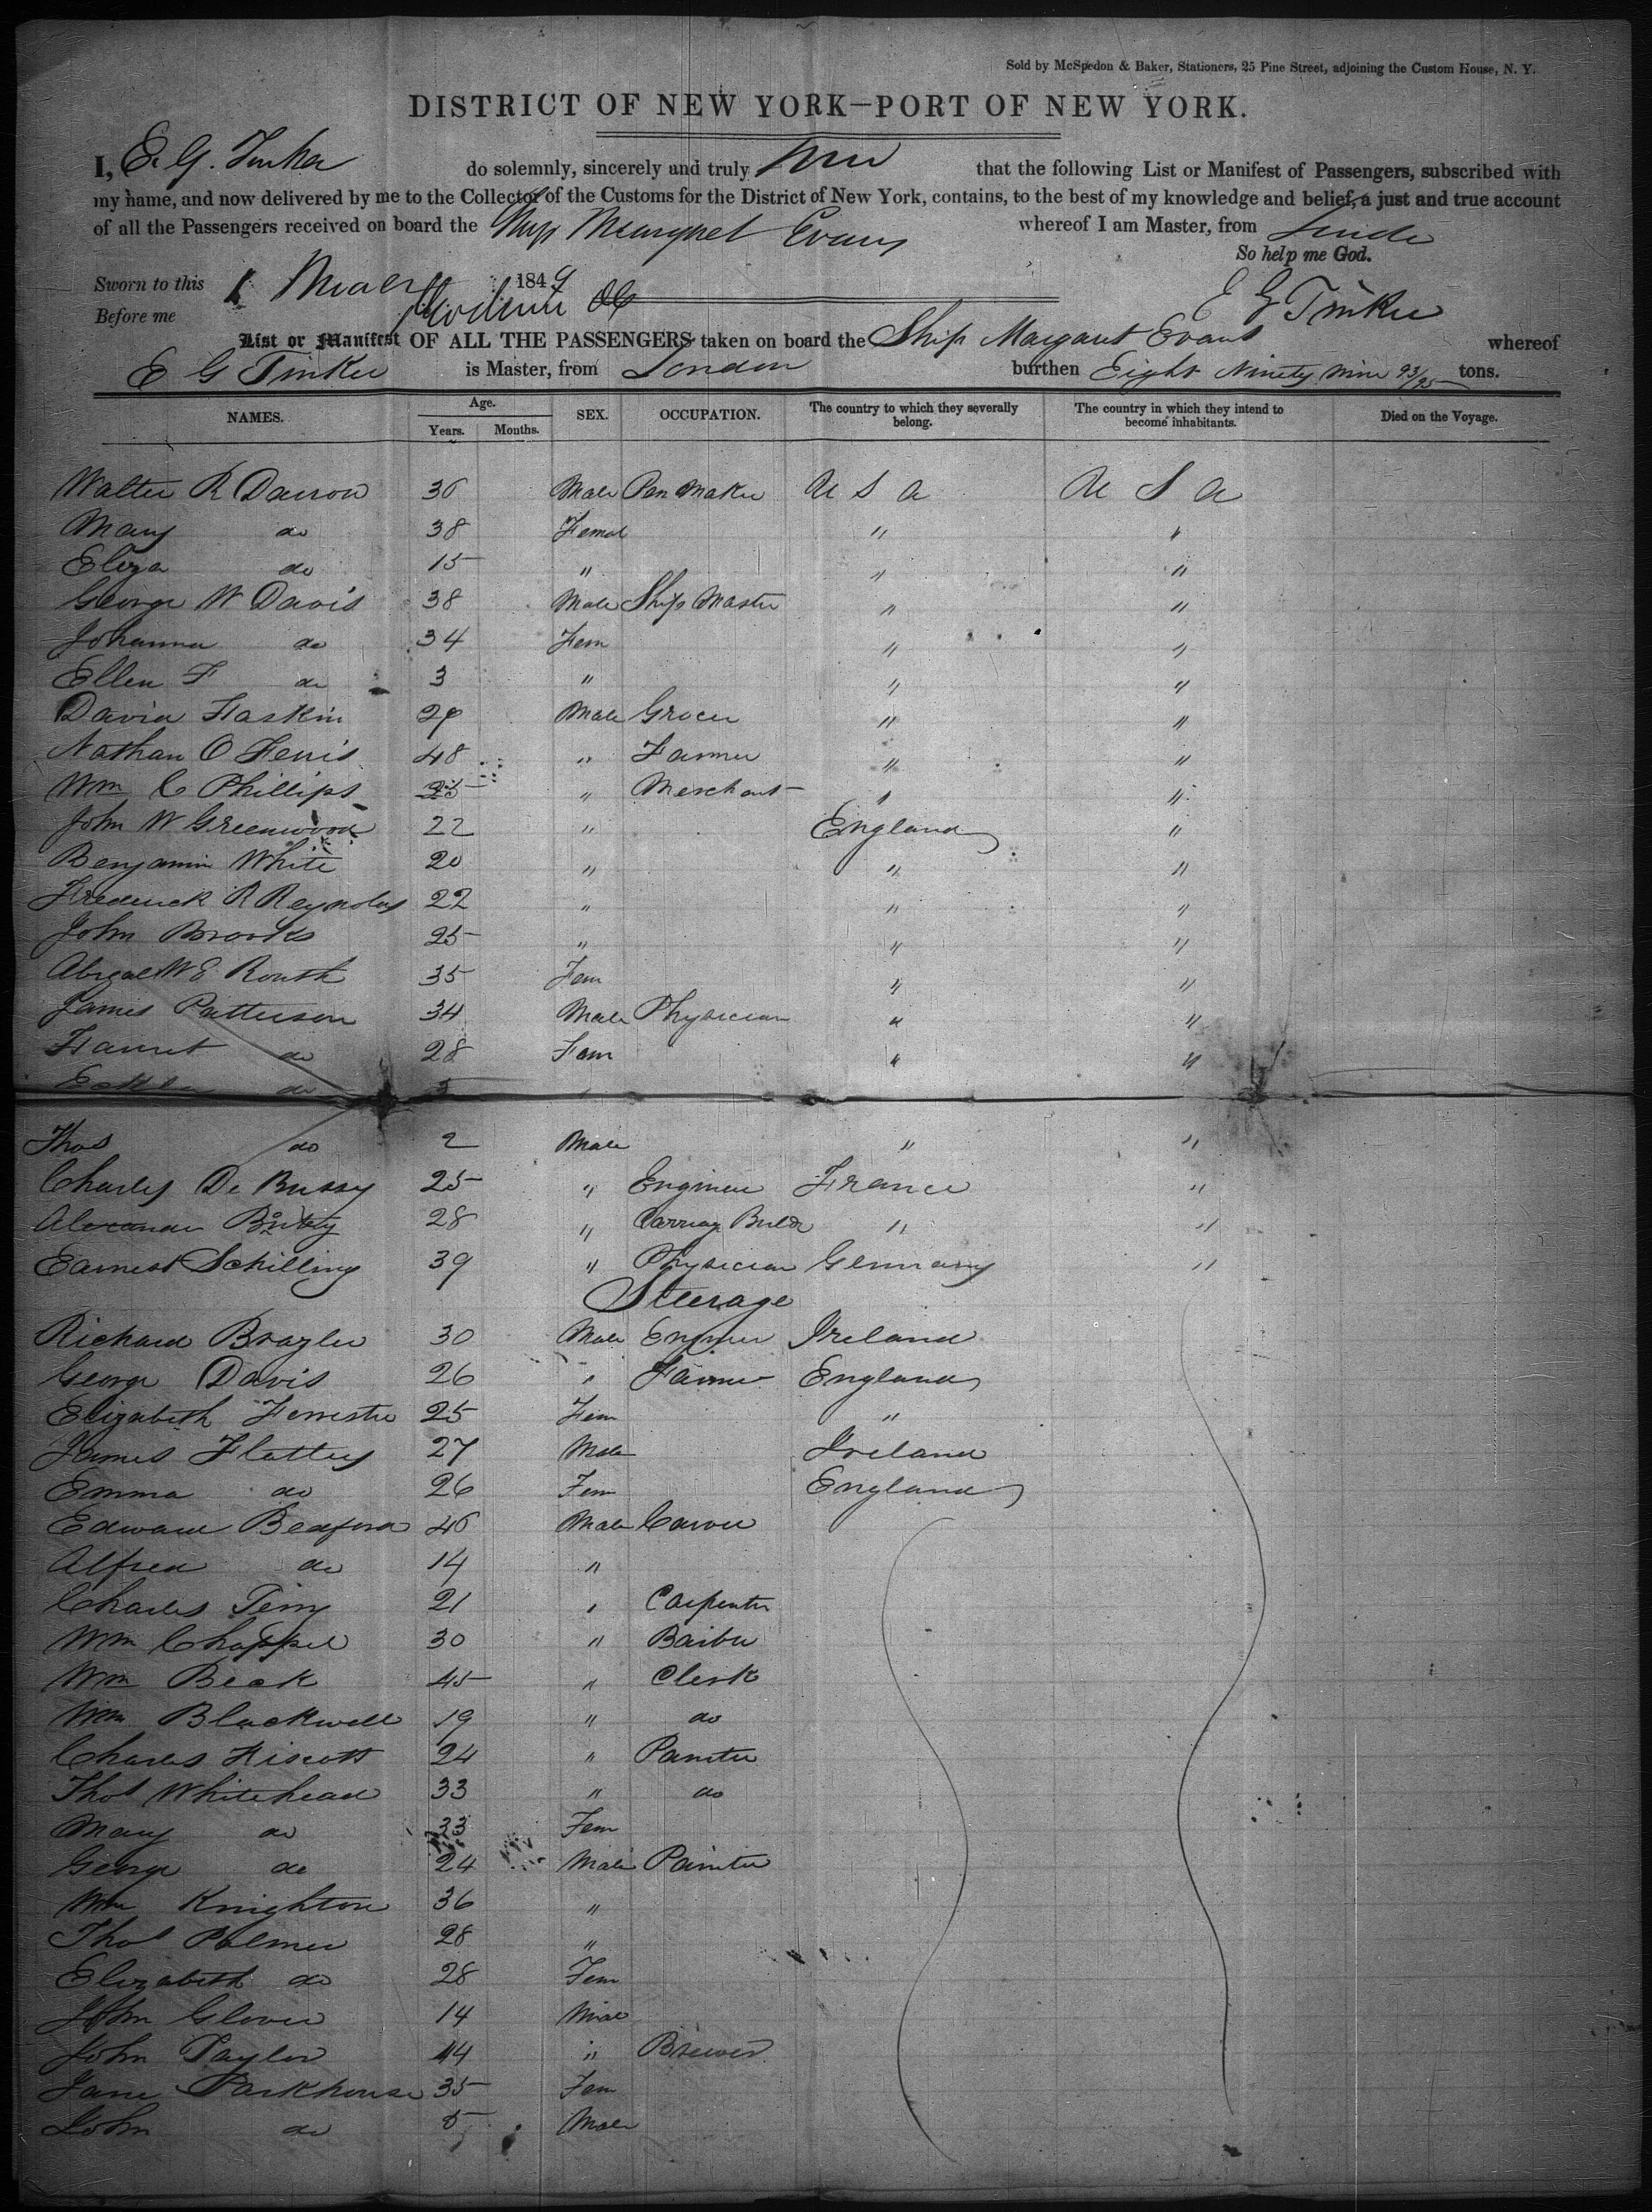 Sold by McSpedon & Baker, Stationers, 25 Pine Street, adjoining the Custom House, N. Y.
DISTRICT OF NEW YORK—PORT OF NEW YORK.
I, E. G. Tinker do solemnly, sincerely and truly that the following List or Manifest of Passengers, subscribed with
my name, and now delivered by me to the Collector of the Customs for the District of New York, contains, to the best of my knowledge and belief, a just and true account
of all the Passengers received on board the Ship Margaret Evans whereof I am Master, from
So help me God.
Sworn to this 1 1849 E G Tinker
Before me
List or Manifest OF ALL THE PASSENGERS taken on board the Ship Margaret Evans whereof
E G Tinker is Master, from London burthen Eight Ninety Nine 93/95 tons.
NAMES. Age. Years. Months. SEX. OCCUPATION. The country to which they severally belong. The country in which they intend to become inhabitants. Died on the Voyage.
Walter R Darrow 36 Male Pen Maker U S A U S A
Mary do 38 Femal " "
Eliza do 15 " " "
George W Davis 38 Male Ship Master " "
Johanna do 34 Fem " "
Ellen F do 3 " " "
David Haskin 29 Male Grocer " "
Nathan O Ferris 48 " Farmer " "
Wm C Phillips " Merchant " "
John W Greenwood 22 " England "
Benjamin White 20 " " "
Frederick R Reynolds 22 " " "
John Brooks 25 " " "
Abigal W E Routh 35 Fem " "
James Patterson 34 Male Physician " "
Harriet do 28 Fem " "
do 3
Thos do 2 Male " "
Charles De Bussy 25 " Engineer France "
28 " Carriag Buldr " "
Earnest Schilling 39 " Physician Germany "
Steerage
Richard Brazler 30 Male Ireland
George Davis 26 " Farmer England
Elizabeth Forrester 25 Fem "
James Flattery 27 Male Ireland
Emma do 26 Fem England
Edward Bedford 46 Male Carver
Alfred do 14 "
Charles Terry 21 " Carpenter
Wm Chappel 30 " Barber
Wm Beak 45 " Clerk
Wm Blackwell 19 " do
Charles Hiscott 24 " Painter
Thos Whitehead 33 " do
Mary do 33 Fem
George do 24 Male Painter
Wm Knighton 36 "
Thos Palmer 28 "
Elizabeth do 28 Fem
John Glover 14 Male
John Taylor 44 " Brewer
Jane Parkhouse 35 Fem
John do 5 Male